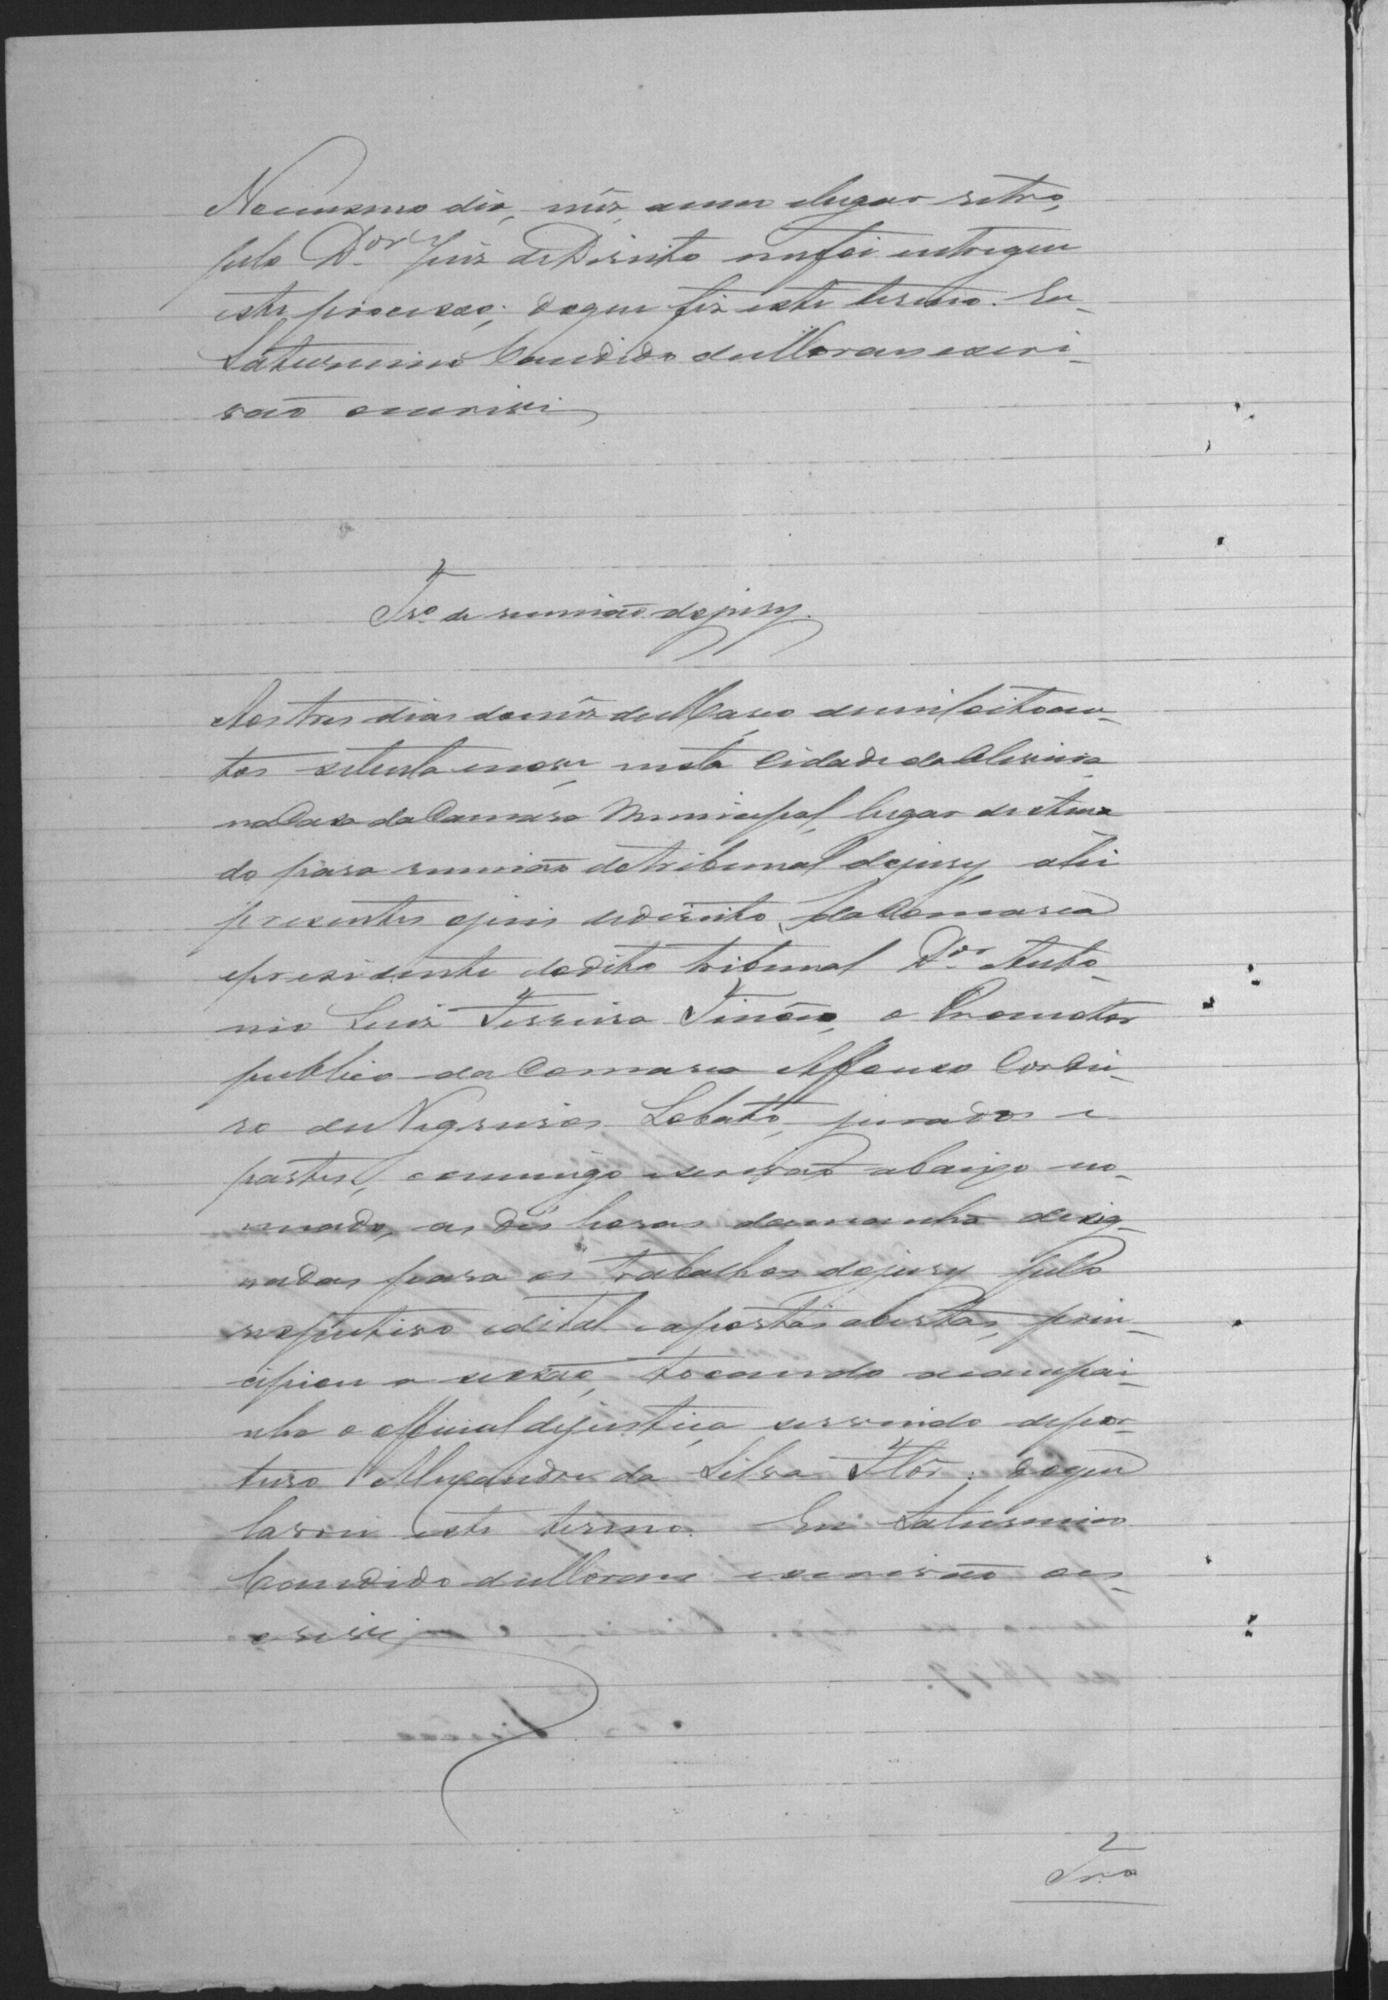 No mesmo dia, mez, anno e lugar retro,
pelo D.or Juiz de Direito me foi entregue
este processo; do que fiz este termo. Eu
Saturnino Candido de Moraes escri-
vão escrevi
Tr.o de reunião do jury.
Aos tres dias do mez de Março de mil oitocen-
tos setenta e nove nesta Cidade da
na Casa da Camara Municipal, lugar destina
do para reunião do tribunal do jury, ahi
presentes o juiz de direito da Comarca
e presidente do dito tribunal D.or Anto-
nio Luiz Ferreira Tinôco, o Promotor
publico da Comarca Affonso Cordei-
ro de Negreiros Lobato, jurados e
partes, commigo escrivão abaixo no-
meado, as dês horas da manhã desig-
nadas para os trabalhos do jury pelo
respectivo edital e a portas abertas, prin-
cipiou a sessão, tocando a campai-
nha o official de justiça servindo de por-
teiro Alexandre da Silva Flôr; do que
lavrei este termo. Eu Saturnino
Candido de Moraes escrivão es-
crevi
Tr.o